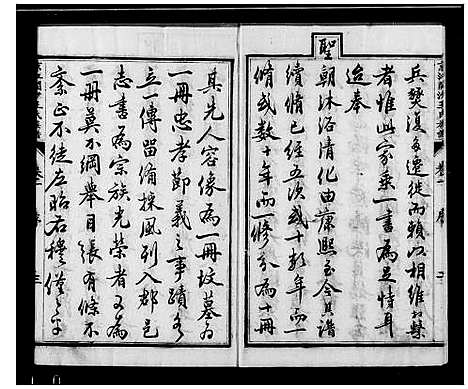 兵燹復多遷徙而賴以相維相繫
者惟此家乘一書為足恃耳
迨奉
聖
朝沐浴清化由康熙至今其譜
續脩已經五次或十數年而一
脩或數十年而一修分為十冊
其先人容像為一冊墳墓為
一冊忠孝節義之事蹟各
立一傳留備採風列入郡邑
志書為宗族光榮者又為
一冊莫不綱舉目張有條不
紊正不徒左昭右穆僅